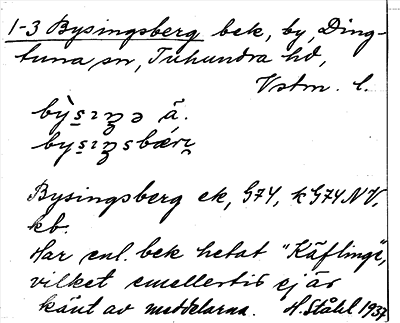 1-3 Bysingsberg bek, by, Ding-
tuna sn, Tuhundra hd,
Vstm. l.
Bysingsberg ek, G74, k G74 NV.
kb.
Har enl. bek hetat "Käflinge",
vilket emellertid ej är
känt av meddelarna. H. Ståhl 1937